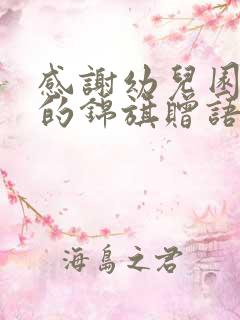 感謝幼兒园
的錦旗贈語
海島之君